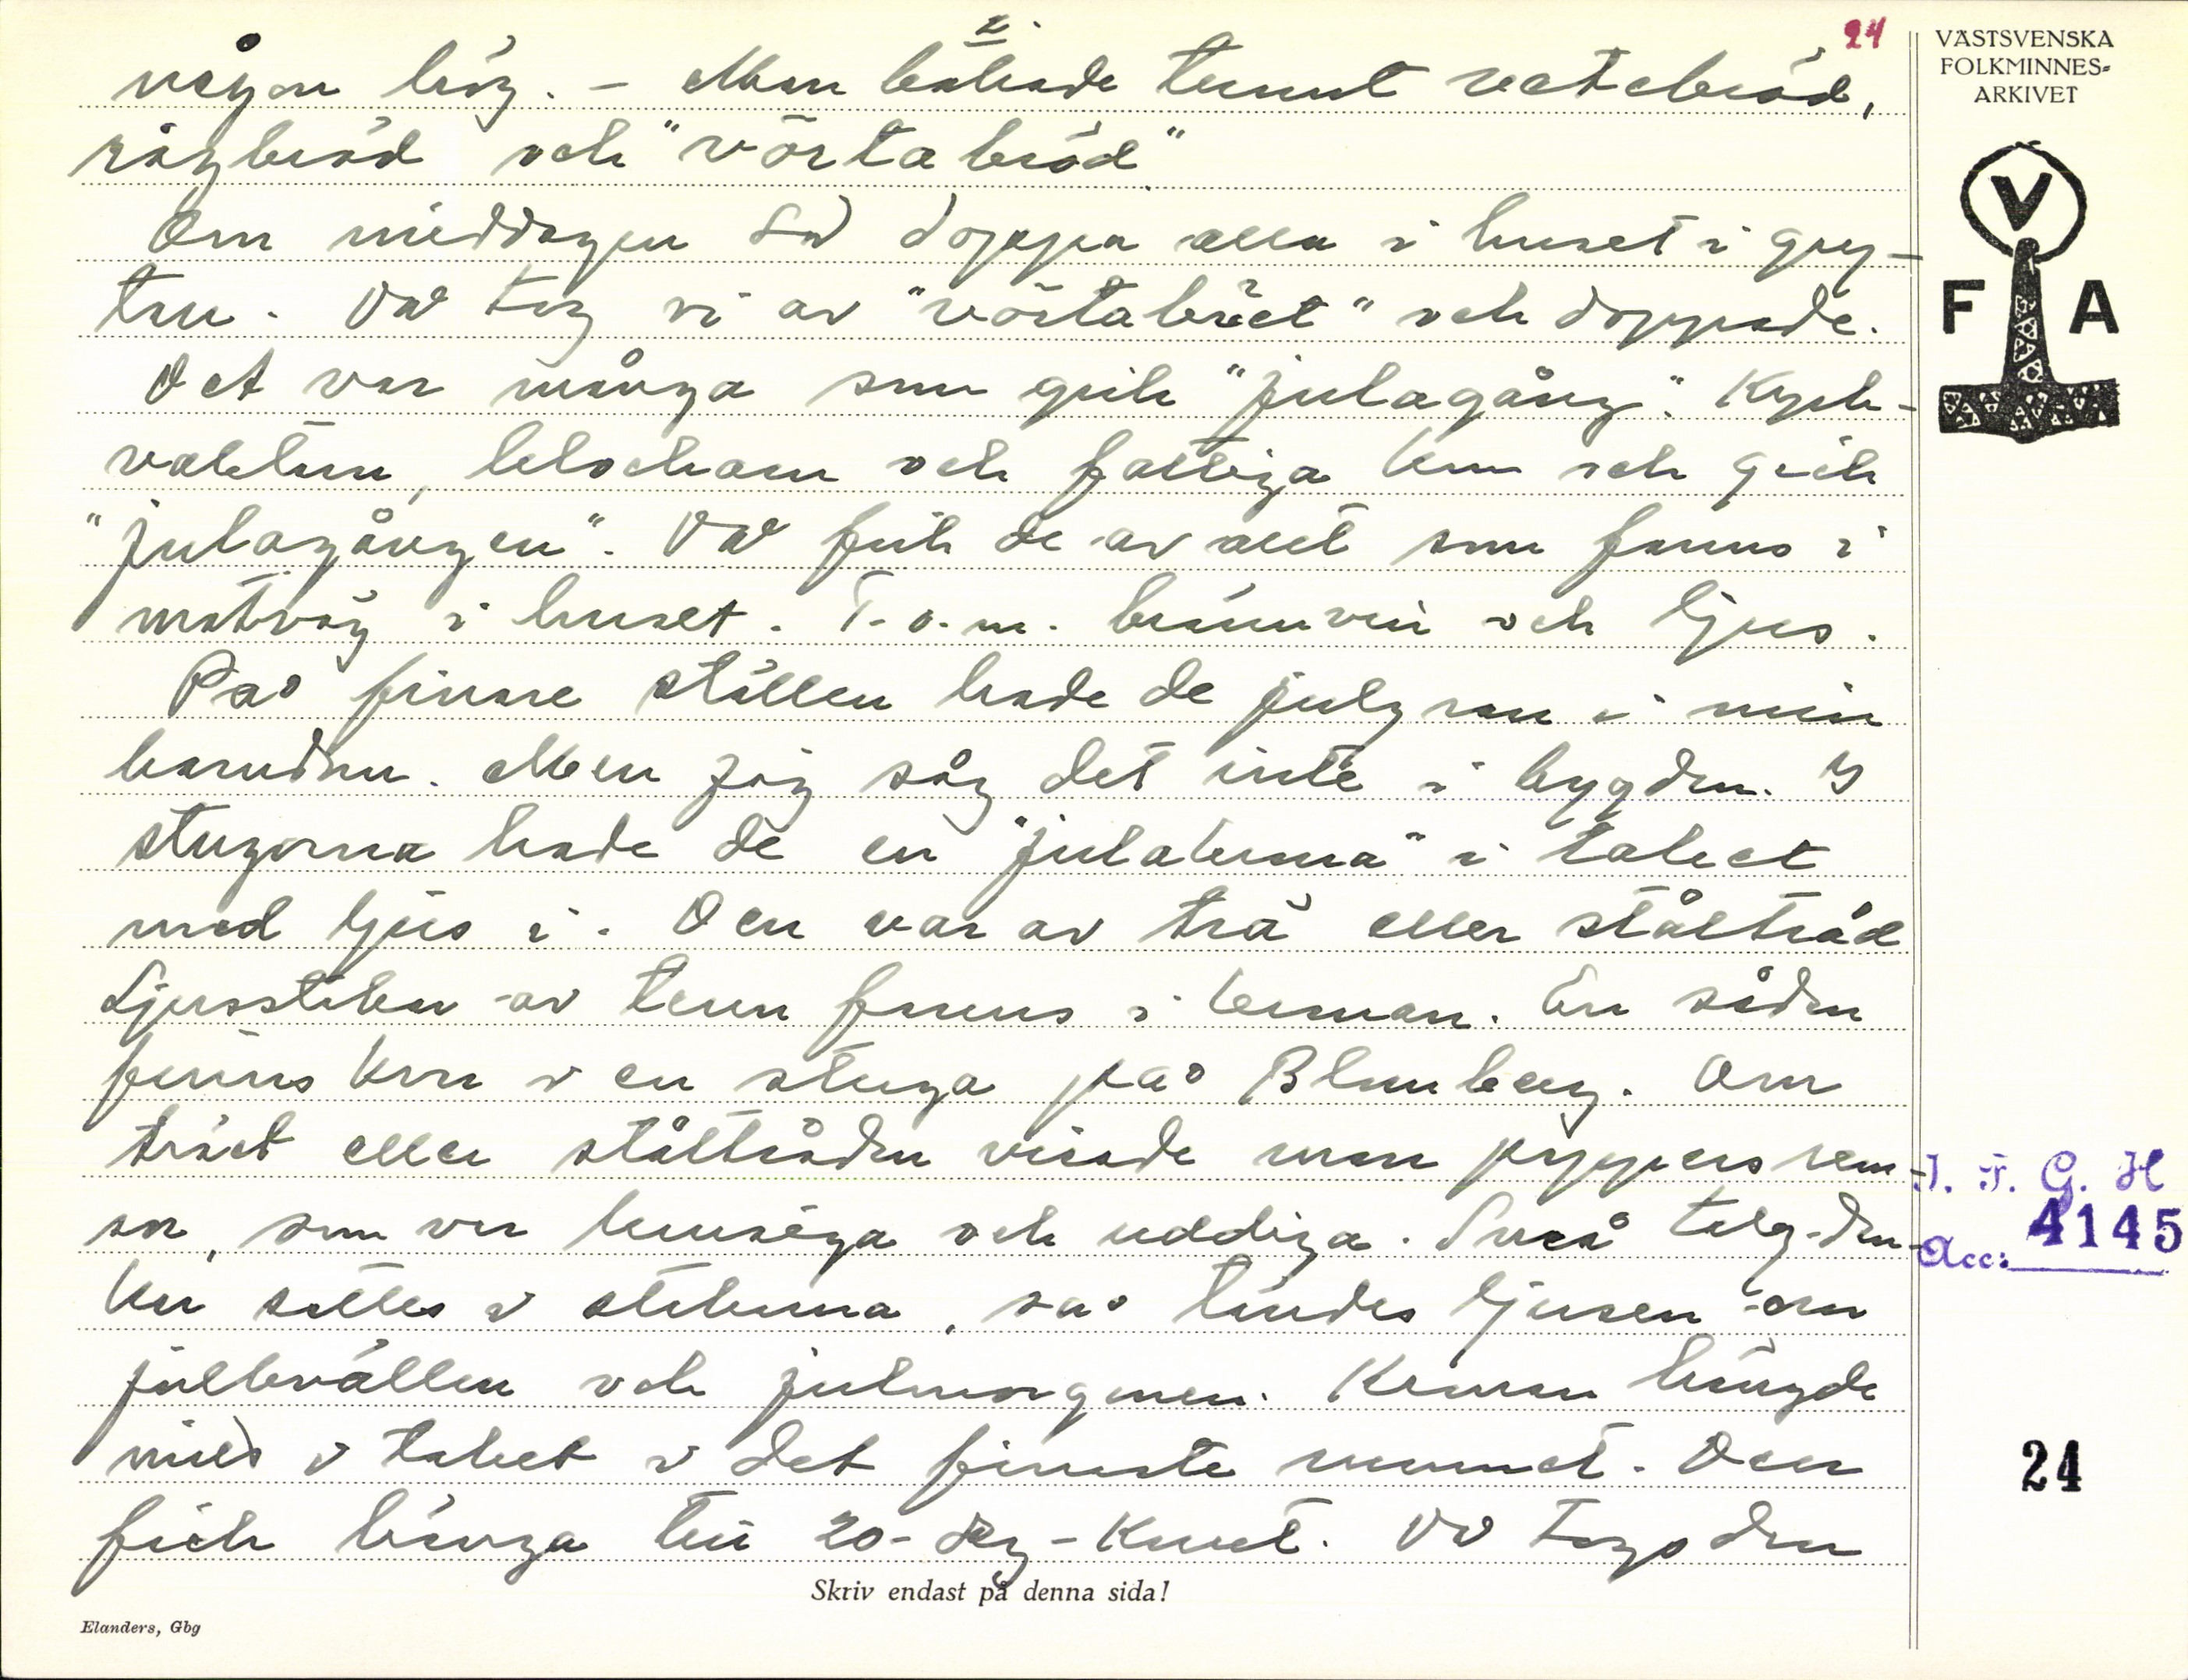 2.
24
någon hög. – Man bakade tunnt vetebröd,
rågbröd och "vörtabröd"
Om middagen så doppa alla i huset i gry-
tan. Då tog vi av "vörtabröet" och doppade.
Det var många som gick "julagång". Kyrk-
vaktarn, klockarn och fattiga kom och gick
"julagången". Då fick de av allt som fanns i
matväg i huset. T.o.m. brännvin och ljus.
På finare ställen hade de julgran i min
barndom. Men jag såg det inte i bygden. I
stugorna hade de en "julakrona" i taket
med ljus i. Den var av trä eller ståltråd
Ljusstakar av tenn fanns i kronan. En sådan
finns kvar i en stuga på Blomberg. Om
träet eller ståltråden virade man pappersrem-
sor, som var krusiga och uddiga. Små talg-dan-
kar sattes i stakarna, så tändes ljusen om
julkvällen och julmorgonen. Kronan hängde
mitt i taket i det finaste rummet. Den
fick hänga till 20-dag-Knut. Då togs den
Skriv endast på denna sida!
Elanders, Gbg
VÄSTSVENSKA
FOLKMINNES-
ARKIVET
V
F A
I. F. G. H
Acc: 4145
24